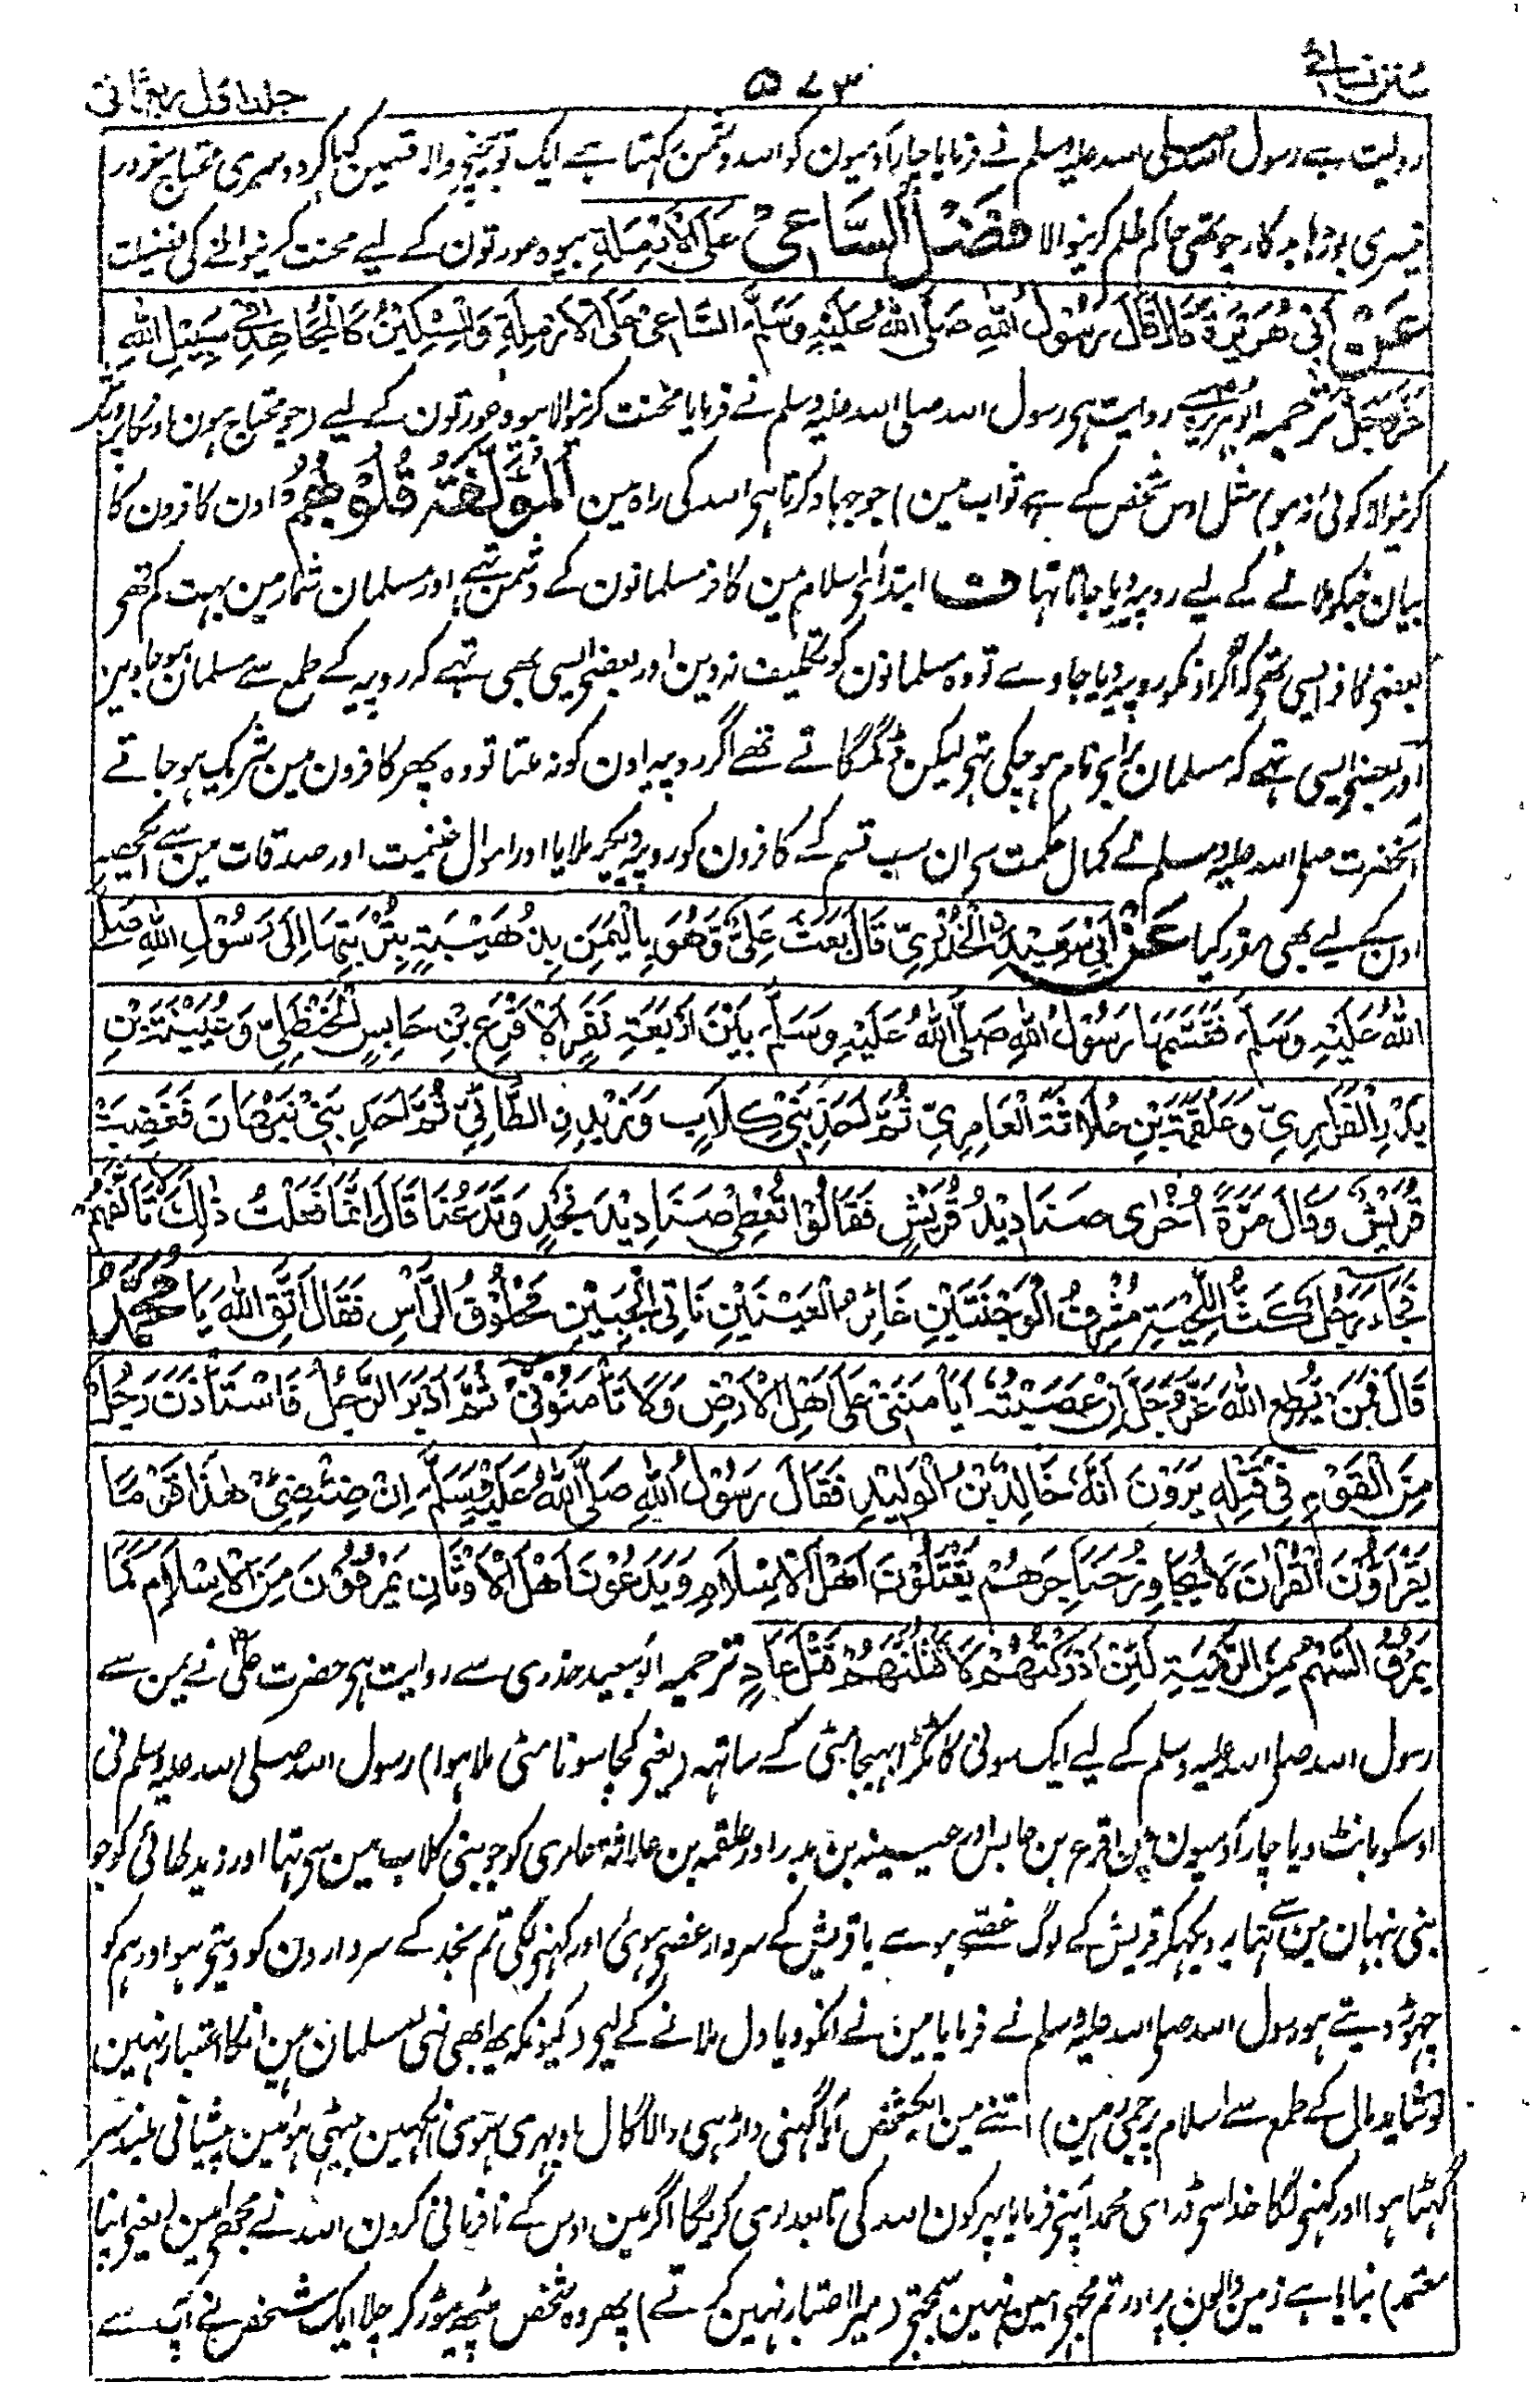 سنن نسائی
۵۷۳
جلد اول ربع ثانی
روایت ہے رسول اللہ صلی اللہ علیہ وسلم نے فرمایا چار آدمیون کو اللہ دشمن رکہتا ہے ایک تو بیچنے والا قسمین کہا کر دوسری محتاج مغرور
تیسری بوڑہا بدکار چوتھی حاکم ظلم کرنیوالا فَضْلُ السَّاعِیْ عَلَی الْاَرْمَلَةِ بیوہ عورتون کے لیے محنت کرنیوالے کی فضیلت
عَنْ اَبِیْ هُرَیْرَةَ قَالَ قَالَ رَسُوْلُ اللهِ صَلَّی اللهُ عَلَیْهِ وَسَلَّمَ السَّاعِیْ عَلَی الْاَرْمِلَةِ وَالْمِسْکِیْنِ کَالْمُجَاهِدِ فِیْ سَبِیْلِ اللهِ
عَزَّ وَجَلَّ ترجمہ ابوہریرہؓ سے روایت ہی رسول اللہ صلی اللہ علیہ وسلم نے فرمایا محنت کرنیوالا بیوہ عورتون کے لیے (جو محتاج ہون اونکا خبرگیری
کرنیوالا کوئی نہ ہو) مثل اوس شخص کے ہے ثواب مین) جو جہاد کرتا ہی اللہ کی راہ مین اَلْمُؤَلَّفَةُ قُلُوْبُهُمْ اون کافرون کا
بیان جنکو ملانے کے لیے روپیہ دیا جاتا تہا ف ابتدای اسلام مین کافر مسلمانون کے دشمن تہے اور مسلمان شمار مین بہت کم تھی
بعضی کافر ایسی تھی کہ اگر اونکو روپیہ دیا جاوے تو وہ مسلمانون کو تکلیف نہ دین اور بعضی ایسی بھی تہے کہ روپیہ کے طمع سے مسلمان ہو جاوین
اور بعضی ایسی تہے کہ مسلمان برای نام ہو چکی تہی لیکن ڈگمگاتے تھے اگر روپیہ اون کو نہ ملتا تو وہ پھر کافرون مین شریک ہو جاتے
آنحضرت صلی اللہ علیہ وسلم نے کمال حکمت سی ان سب قسم کے کافرون کو روپیہ دیکر ملایا اور اموال غنیمت اور صدقات مین سے ایک حصہ
اون کے لیے بھی مقرر کیا عَنْ اَبِیْ سَعِیْدِ نِ الْخُدْرِیِّ قَالَ بَعَثَ عَلِیٌّ وَّهُوَ بِالْیَمَنِ بِذُهَیْبَةٍ بِتُرْبَتِهَا اِلَی رَسُوْلِ اللهِ صَلَّی
اللهُ عَلَیْهِ وَسَلَّمَ فَقَسَّمَهَا رَسُوْلُ اللهِ صَلَّی اللهُ عَلَیْهِ وَسَلَّمَ بَیْنَ اَرْبَعَةِ نَفَرٍ الْاَقْرَعِ بْنِ حَابِسٍ الْحَنْظَلِیِّ وَعُیَیْنَةَ بْنِ
بَدْرِ الْفَزَارِیِّ وَعَلْقَمَةَ بْنِ عُلَاثَةَ الْعَامِرِیِّ ثُمَّ اَحَدِ بَنِیْ کِلَابٍ وَزَیْدِ نِ الطَّائِیِّ ثُمَّ اَحَدِ بَنِیْ نَبْهَانَ فَغَضِبَتْ
قُرَیْشٌ وَقَالَ مَرَّةً اُخْرٰی صَنَادِیْدُ قُرَیْشٍ فَقَالُوْا تُعْطِیْ صَنَادِیْدَ نَجْدٍ وَتَدَعُنَا قَالَ اِنَّمَا فَعَلْتُ ذٰلِکَ لِاَتَاَلَّفَهُمْ
فَجَاءَ رَجُلٌ کَثُّ اللِّحْیَةِ مُشْرِفُ الْوَجْنَتَیْنِ غَائِرُ الْعَیْنَیْنِ نَاتِئُ الْجَبِیْنِ مَحْلُوْقُ الرَّأْسِ فَقَالَ اتَّقِ اللهَ یَا مُحَمَّدُ
قَالَ فَمَنْ یُّطِعِ اللهَ عَزَّ وَجَلَّ اِنْ عَصَیْتُهُ اَیَأْمَنُنِیْ عَلَی اَهْلِ الْاَرْضِ وَلَا تَأْمَنُوْنِیْ ثُمَّ اَدْبَرَ الرَّجُلُ فَاسْتَأْذَنَ رَجُلٌ
مِنَ الْقَوْمِ فِیْ قَتْلِهِ یَرَوْنَ اَنَّهُ خَالِدُ بْنُ الْوَلِیْدِ فَقَالَ رَسُوْلُ اللهِ صَلَّی اللهُ عَلَیْهِ وَسَلَّمَ اِنَّ مِنْ ضِئْضِئِ هٰذَا قَوْمًا
یَقْرَاُوْنَ الْقُرْاٰنَ لَا یُجَاوِزُ حَنَاجِرَهُمْ یَقْتُلُوْنَ اَهْلَ الْاِسْلَامِ وَیَدَعُوْنَ اَهْلَ الْاَوْثَانِ یَمْرُقُوْنَ مِنَ الْاِسْلَامِ کَمَا
یَمْرُقُ السَّهْمُ مِنَ الرَّمِیَّةِ لَئِنْ اَدْرَکْتُهُمْ لَاَقْتُلَنَّهُمْ قَتْلَ عَادٍ ترجمہ ابو سعید خدری سے روایت ہی حضرت علیؓ نے یمن سے
رسول اللہ صلی اللہ علیہ وسلم کے لیے ایک سونی کا ٹکڑا بہیجا مٹی کے ساتہہ (یعنی کچا سونا مٹی ملا ہوا) رسول اللہ صلی اللہ علیہ وسلم نی
اوسکو بانٹ دیا چار آدمیون مین اقرع بن حابس اور عیینہ بن بدر اور علقمہ بن علاثہ عامری کو جو بنی کلاب مین سی تہا اور زید طائی کو جو
بنی نبہان مین سے تہا یہ دیکہکر قریش کے لوگ غصے ہوے یا قریش کے سردار غصی ہوئی اور کہنی لگی تم نجد کے سردارون کو دیتی ہو اور ہم کو
چہوڑ دیتے ہو رسول اللہ صلی اللہ علیہ وسلم نے فرمایا مین نے انکو دیا دل ملانے کے لیے (کیونکہ یہ ابھی نئی مسلمان ہین انکا اعتبار نہین
تو شاید مال کے طمع سے اسلام پر جمی رہین) اتنے مین ایک شخص آیا گہنی داڑہی والا گال اوبہری ہوی آنکہین بیٹہی ہوئین پیشانی بلند سر
گہٹا ہوا اور کہنی لگا خدا سی ڈر ای محمد آپنی فرمایا پہر کون اللہ کی تابعداری کریگا اگر مین اوس کے نافرمانی کرون اللہ نے مجھے امین (یعنی اپنا
معتمد) بنایا ہے زمین والون پر اور تم مجھے امین نہین سمجتی (میرا اعتبار نہین کرتے) پھر وہ شخص پیٹھ موڑ کر چلا ایک شخص نے آپ سے